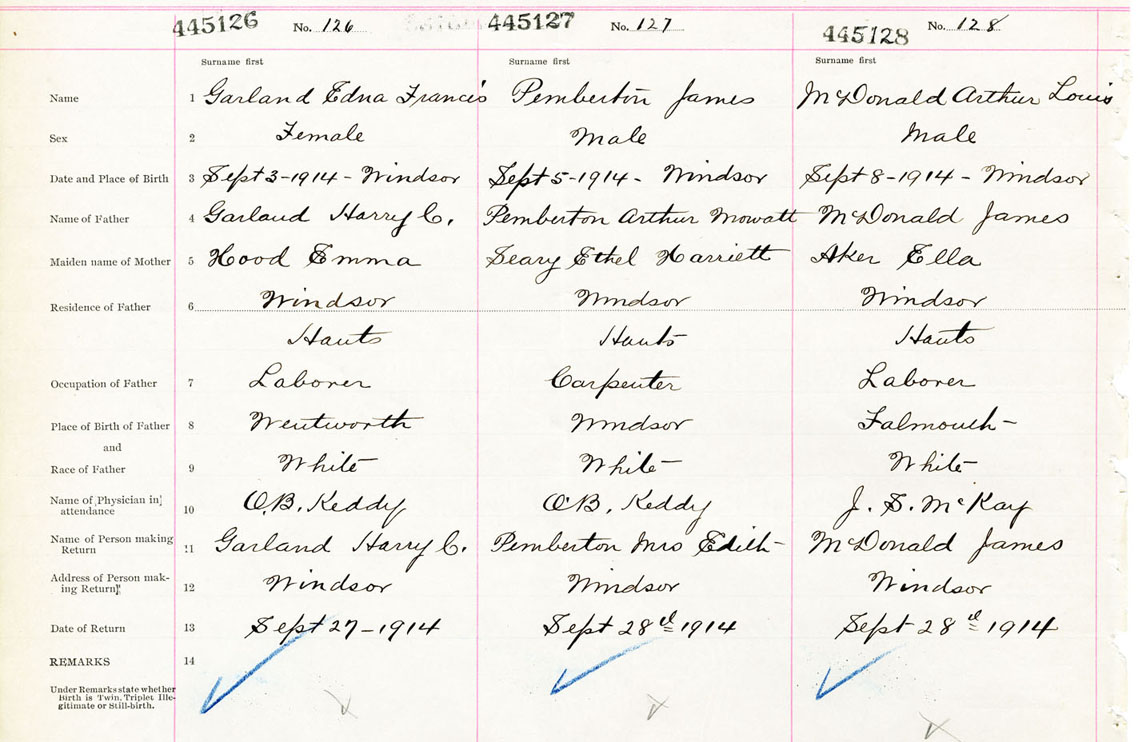 445126 No. 126 445127 No. 127 445128 No. 128
Surname first Surname first Surname first
Name 1 Garland Edna Francis Pemberton James McDonald Arthur Louis
Sex 2 Female Male Male
Date and Place of Birth 3 Sept 3-1914 - Windsor Sept 5-1914 - Windsor Sept 8-1914 - Windsor
Name of Father 4 Garland Harry C. Pemberton Arthur Mowatt McDonald James
Maiden name of Mother 5 Hood Emma Seary Ethel Harriett Aker Ella
Residence of Father 6 Windsor Windsor Windsor
Hants Hants Hants
Occupation of Father 7 Laborer Carpenter Laborer
Place of Birth of Father 8 Wentworth Windsor Falmouth -
and
Race of Father 9 White White White
Name of Physician in attendance 10 O.B. Keddy O.B. Keddy J. S. McKay
Name of Person making Return 11 Garland Harry C. Pemberton Mrs Edith McDonald James
Address of Person making Return 12 Windsor Windsor Windsor
Date of Return 13 Sept 27-1914 Sept 28th 1914 Sept 28th 1914
REMARKS 14
Under Remarks state whether
Birth is Twin, Triplet Ille-
gitimate or Still-birth.